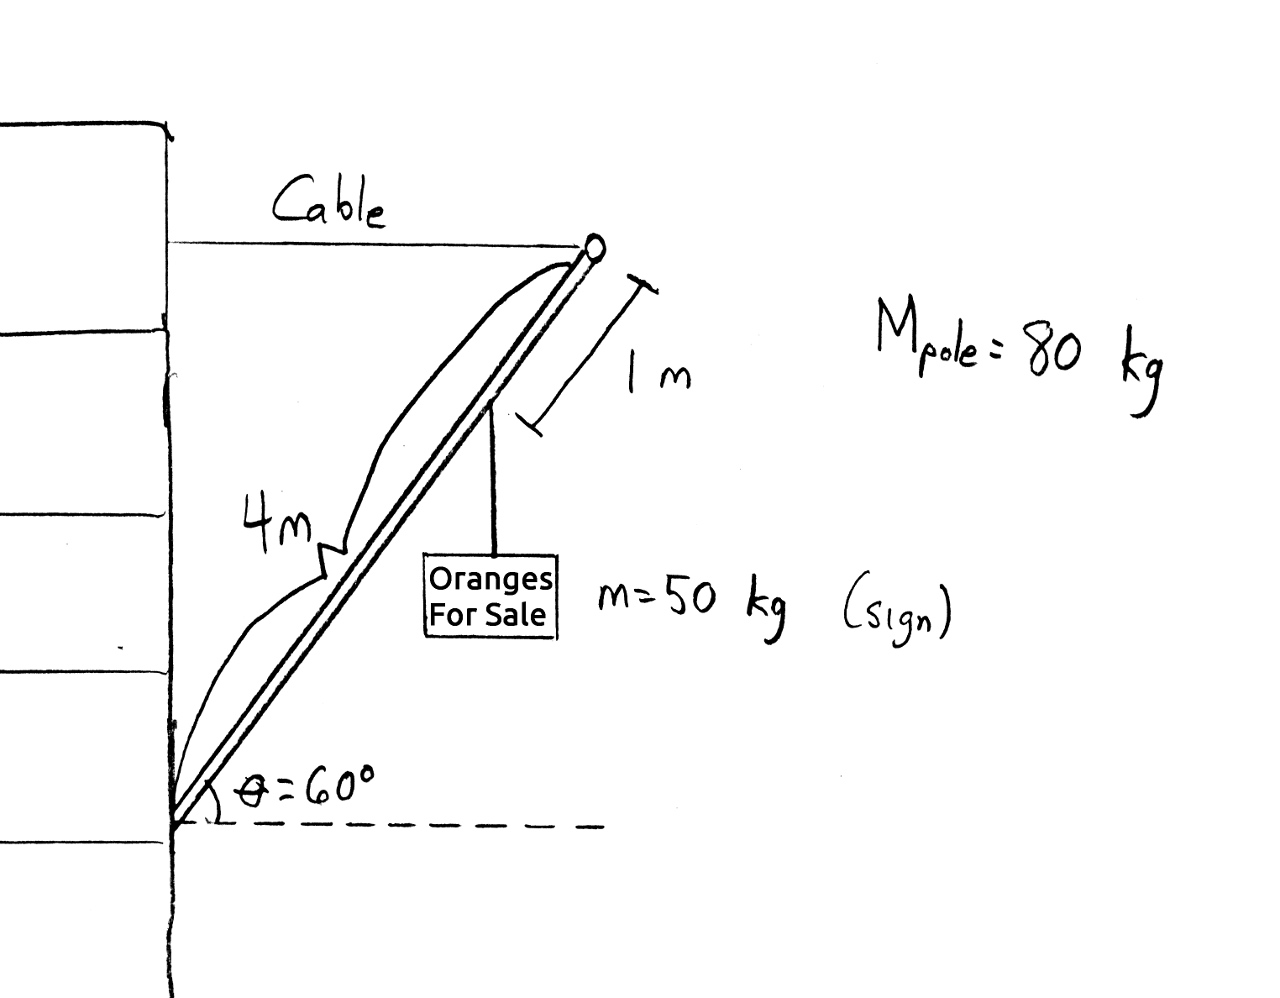 Cable
1 m
M pole = 80 kg
4m
Oranges
For Sale
m=50 kg (sign)
θ = 60°